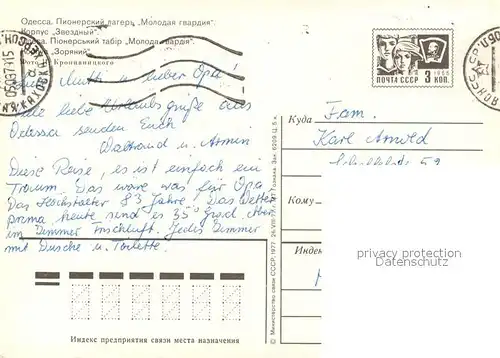 Одесса. Пионерский лагерь „Молодая гвардия".
Корпус „Звездный".
Одеса. Піонерський табір „Молода гвардія".
„Зоряний"
Кропивницкого
Mutti u. lieber Opa!
liebe Urlaubsgrüße aus
Odessa senden Euch
Waltraud u. Armin
Diese Reise, es ist einfach ein
Traum. Das wäre was für Opa
Das Höchstalter 83 Jahre. Das Wetter
prima heute sind es 35 Grad.
im Zimmer Jedes Zimmer
mit Dusche u. Toilette.
Индекс предприятия связи места назначения
© Министерство связи СССР, 1977
ПОЧТА СССР 3 КОП.
1966
Куда
Fam.
Karl
59
Кому
Индекс
privacy protection
Datenschutz